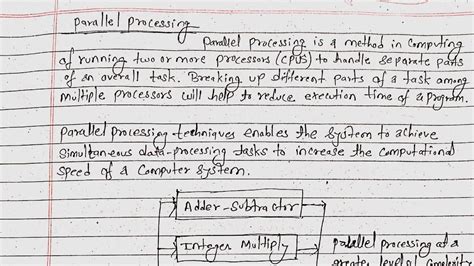 Parallel processing
Parallel processing is a method in computing
of running two or more processors (CPUs) to handle separate parts
of an overall task. Breaking up different parts of a task among
multiple processors will help to reduce execution time of a program.
parallel processing techniques enables the system to achieve
simultaneous data-processing tasks to increase the computational
speed of a computer system.
Adder-Subtractor
Integer Multiply
parallel processing at a
greater level of complexity